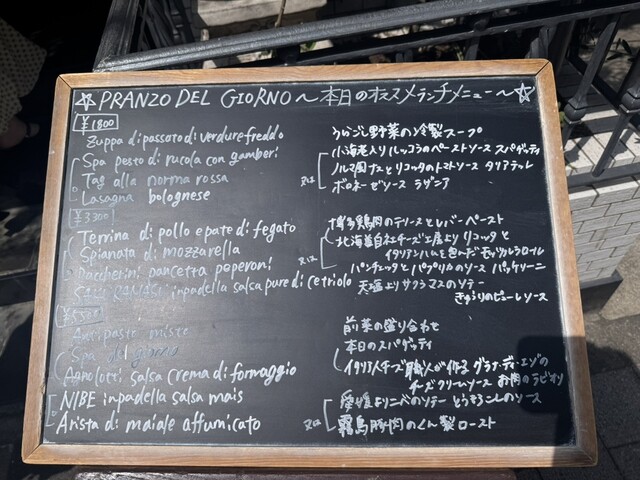 ☆PRANZO DEL GIORNO～本日のオススメランチメニュー～☆
¥1800
Zuppa di passato di verdure freddo うらごし野菜の冷製スープ
Spa pesto di rucola con gamberi 小海老入りルッコラのペーストソース スパゲッティ
Tag alla norma rossa 又は ノルマ風ナスとリコッタのトマトソース タリアテッレ
Lasagna bolognese ボロネーゼソース ラザニア
¥3300
Terrina di pollo e pate di fegato 博多鶏肉のテリーヌとレバーペースト
Spianata di mozzarella 北海道自社チーズ工房より リコッタと
又は イタリアンハムを包んだモッツァレラロール
Paccherini pancetta peperoni パンチェッタとパプリカのソース パッケリーニ
inpadella salsa pure di cetriolo 天塩よりサクラマスのソテー
きゅうりのピューレソース
Antipasto misto 前菜の盛り合わせ
Spa del giorno 本日のスパゲッティ
Agnolotti salsa crema di formaggio イタリアチーズ職人が作る グラナ・ディ・エゾの
チーズクリームソース お肉のラビオリ
NIBE inpadella salsa mais 愛媛よりニベのソテー とうもろこしのソース
Arista di maiale affumicato 又は 霧島豚肉のくん製ロースト